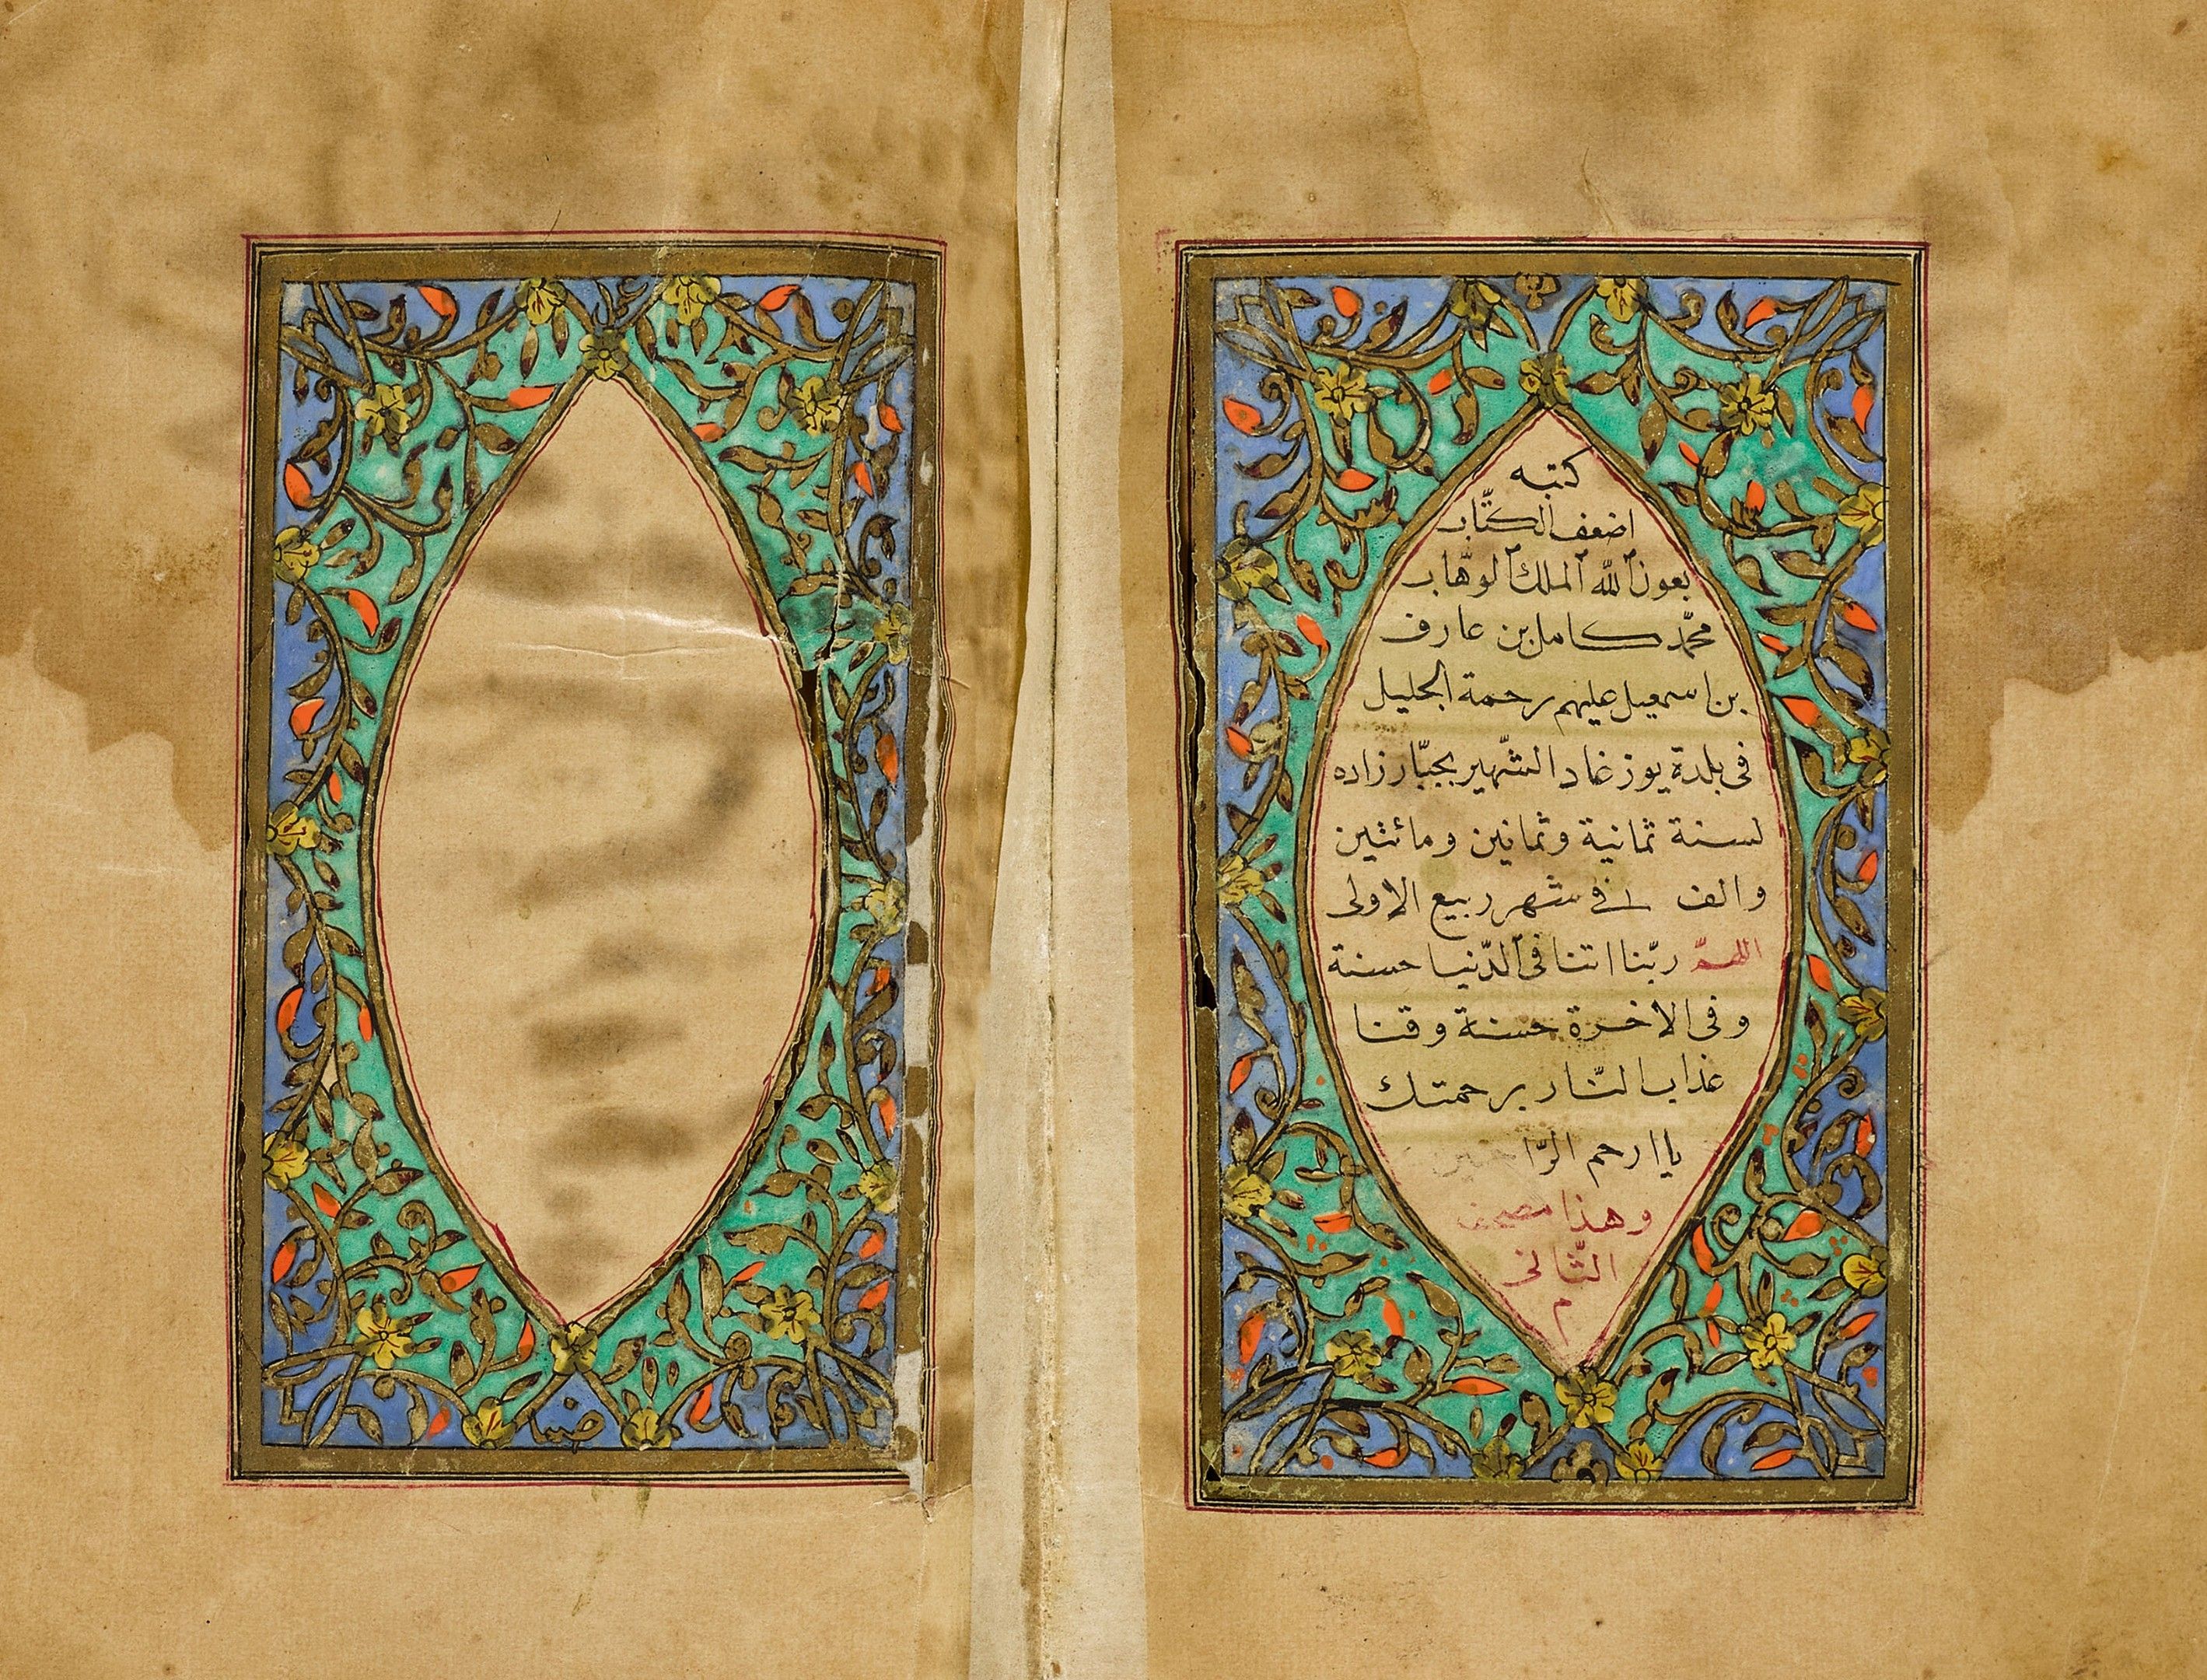 كتبه
اضعف الكتّاب
بعون الله الملك الوهّاب
محمّد كامل بن عارف
بن اسمعيل عليهم رحمة الجليل
فى بلدة يوزغاد الشّهير بجبّار زاده
لسنة ثمانية وثمانين ومائتين
والف فى شهر ربيع الاولى
اللهمّ ربّنا اتنا فى الدّنيا حسنة
وفى الاخرة حسنة وقنا
عذاب النّار برحمتك
يا ارحم الرّاحمين
وهذا مصحف
الثّانى
م